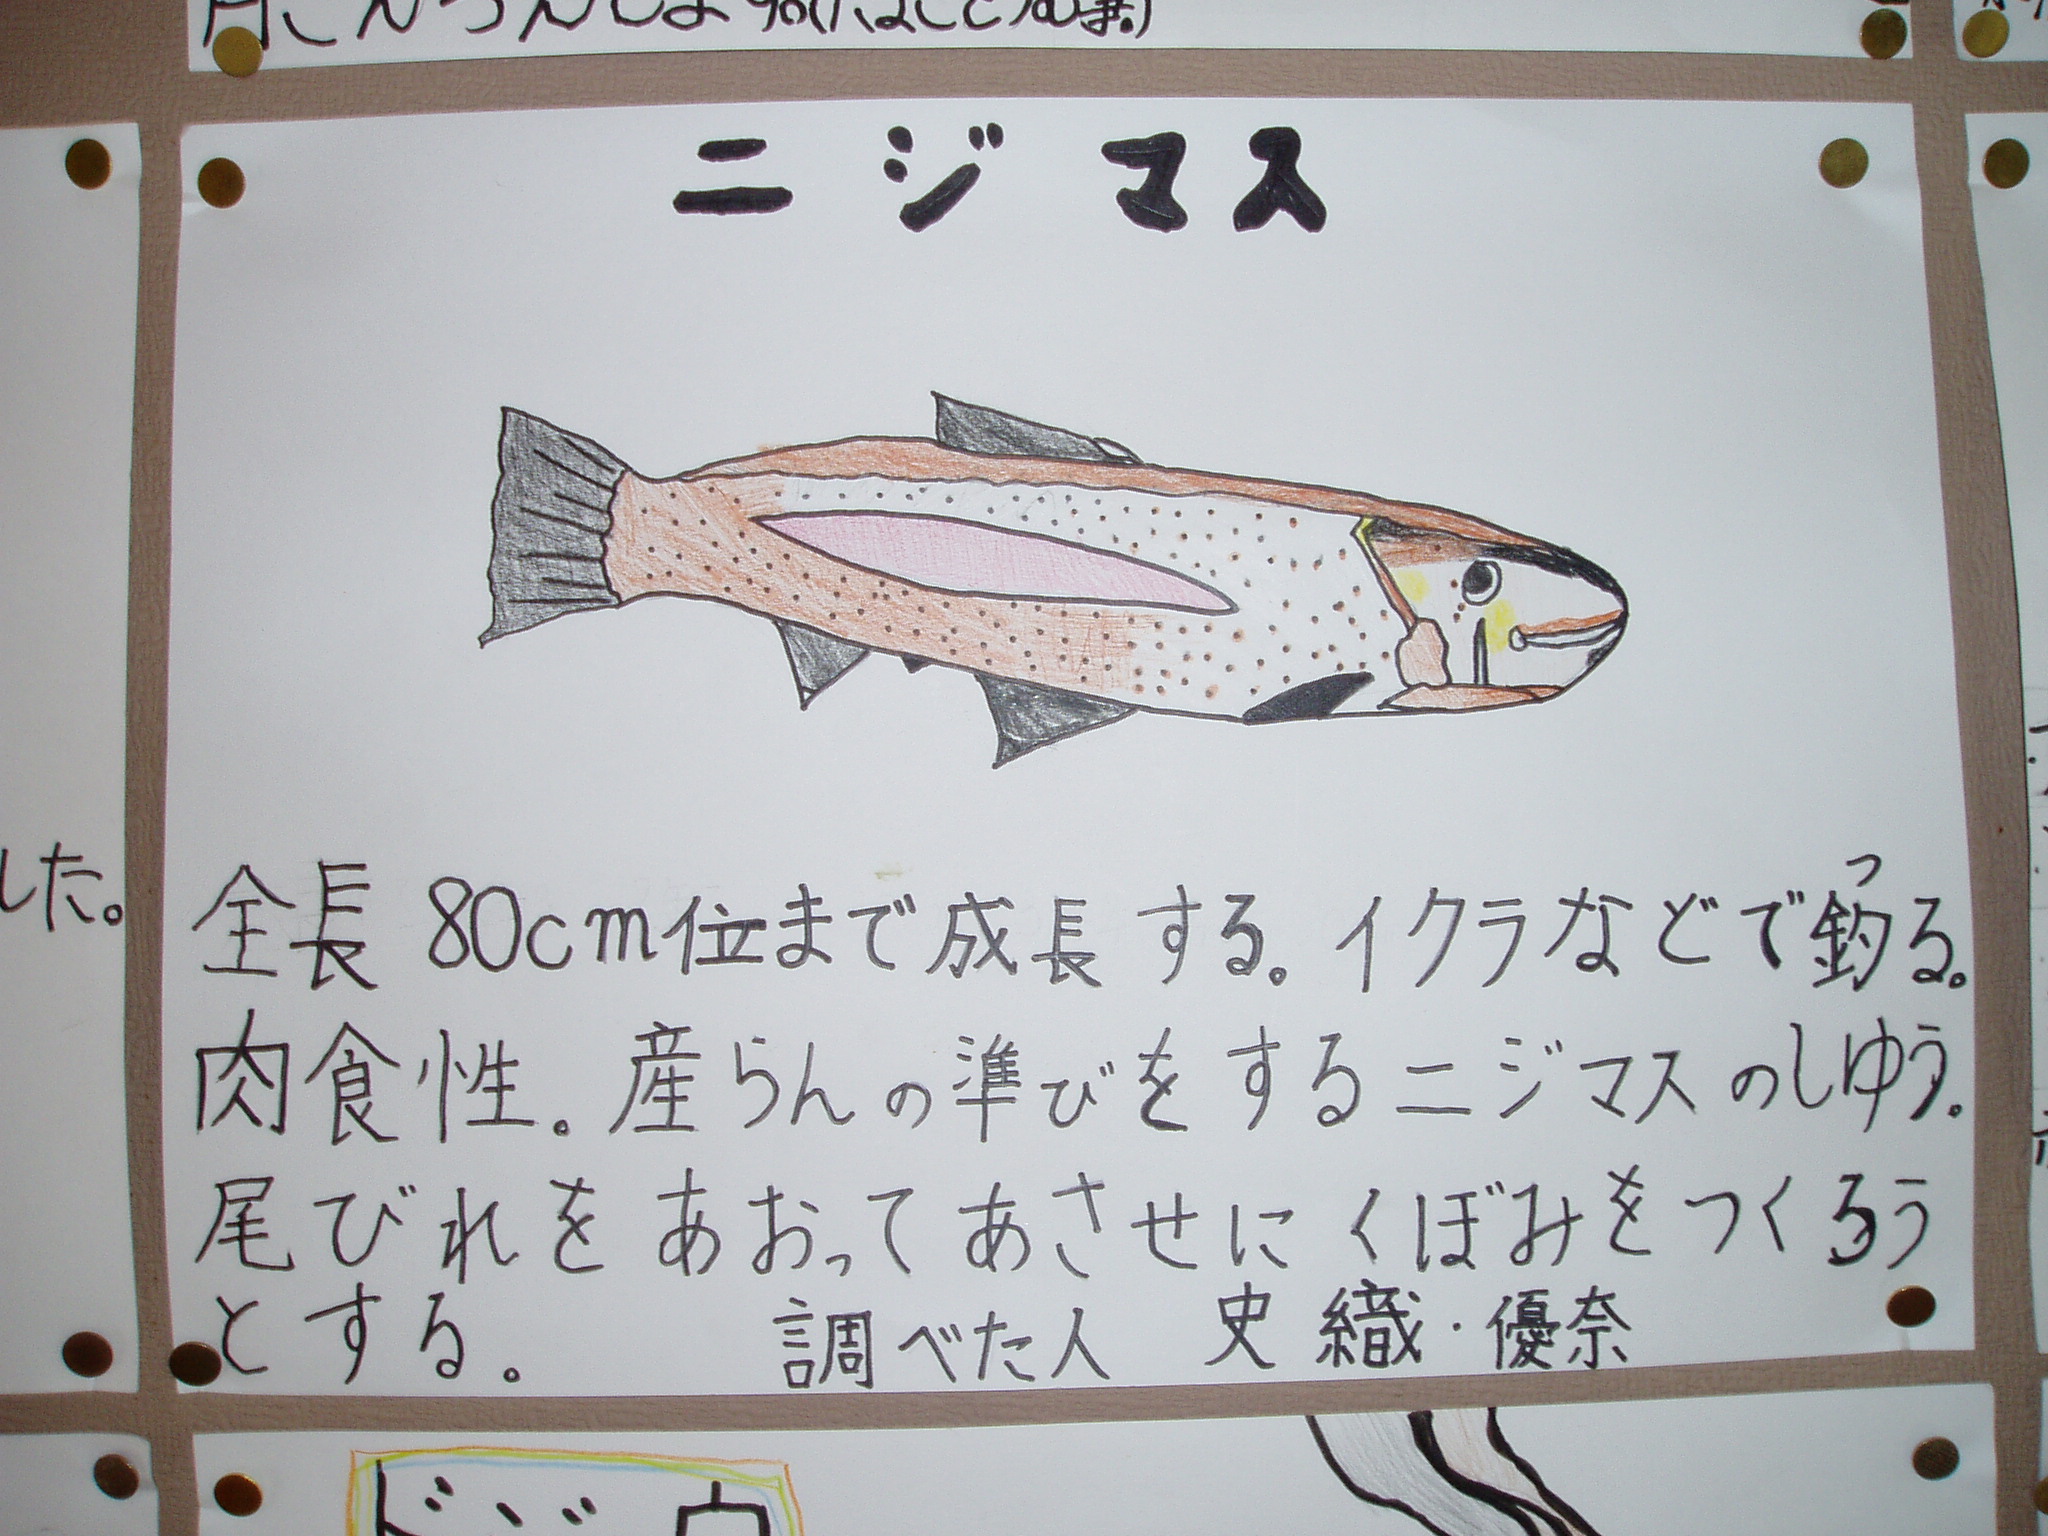 ニジマス
全長 80cm位まで成長する。イクラなどで釣る。
肉食性。産らんの準びをするニジマスのしゆう。
尾びれをあおってあさせにくぼみをつくろう
とする。 調べた人 史織・優奈
した。